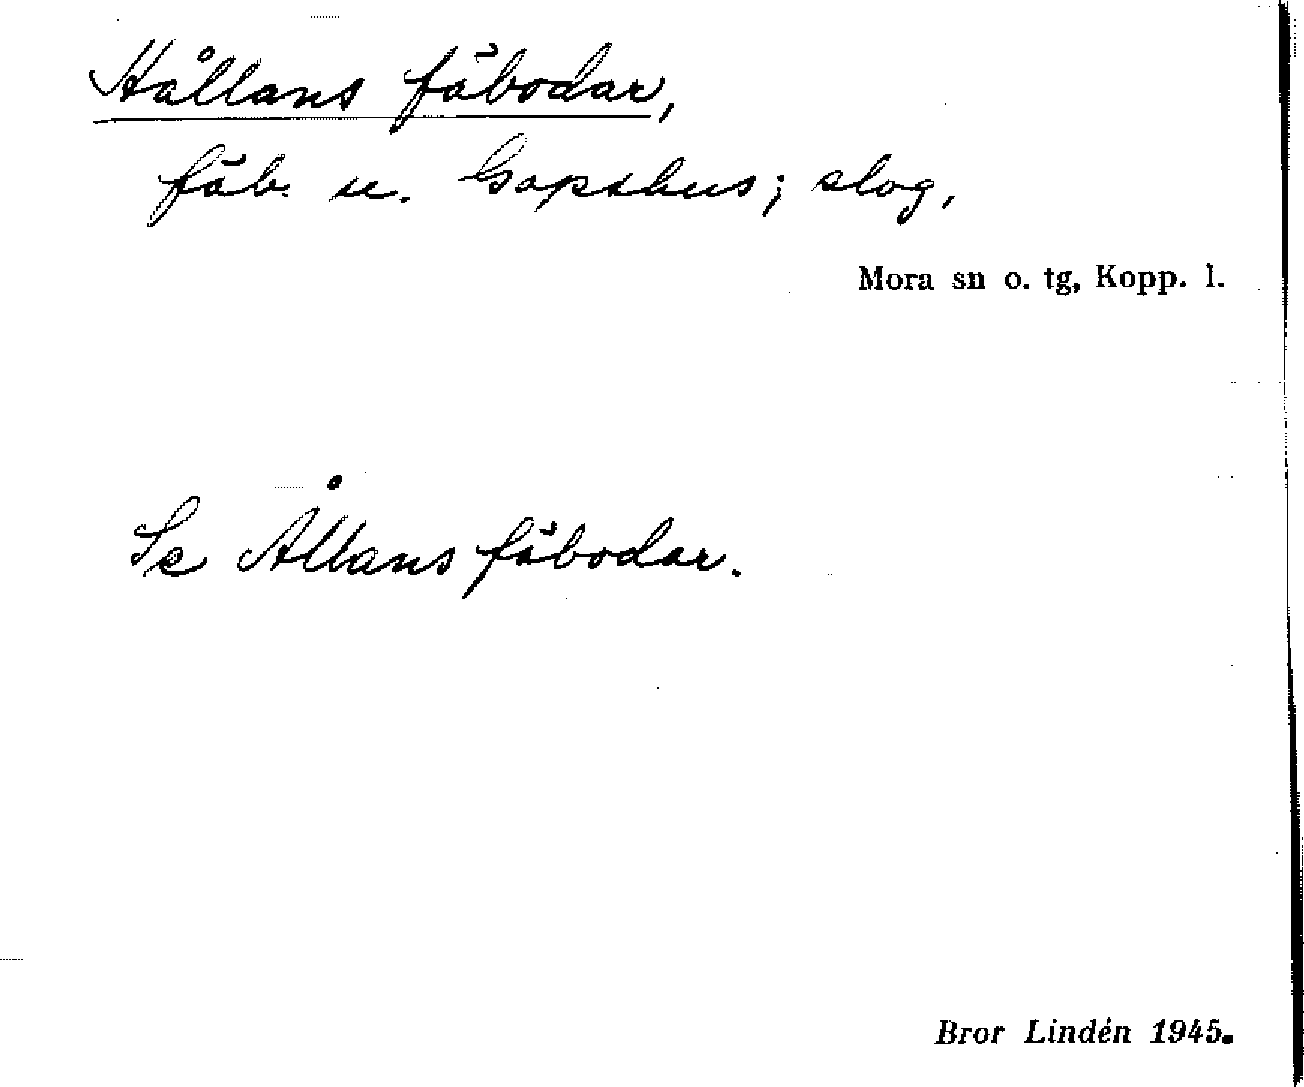 Hållans fäbodar,
fäb. u. Gopshus; slog,
Mora sn o. tg, Kopp. l.
Se Ållans fäbodar.
Bror Lindén 1945.